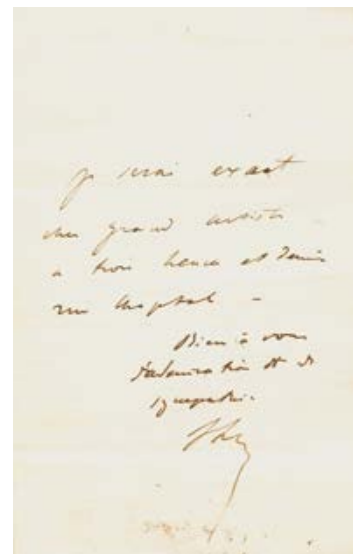 Je serai exact
cher grand artiste
à trois heures et demie
rue Chaptal –
Bien à vous
d'admiration et de
sympathie.